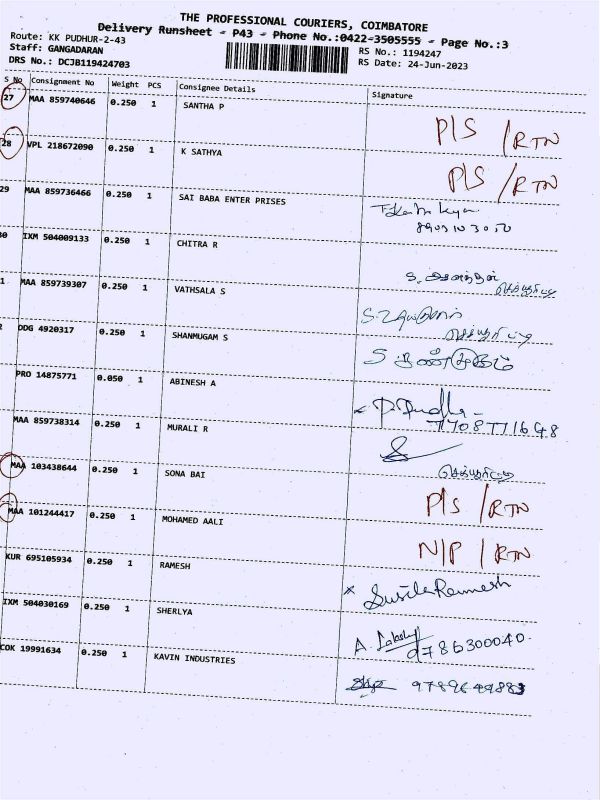 THE PROFESSIONAL COURIERS, COIMBATORE
Delivery Runsheet - P43 - Phone No.:0422-3505555 - Page No.:3
Route: KK PUDHUR-2-43
Staff: GANGADARAN
DRS No.: DCJB119424703
RS No.: 1194247
RS Date: 24-Jun-2023
S No Consignment No Weight PCS Consignee Details Signature
27 MAA 859740646 0.250 1 SANTHA P P/S /RTN
28 VPL 218672090 0.250 1 K SATHYA P/S /RTN
29 MAA 859736466 0.250 1 SAI BABA ENTER PRISES
0 IXM 504009133 0.250 1 CHITRA R
1 MAA 859739307 0.250 1 VATHSALA S
2 DDG 4920317 0.250 1 SHANMUGAM S S சண்முகம்
PRO 14875771 0.050 1 ABINESH A
7708771648
MAA 859738314 0.250 1 MURALI R
MAA 103438644 0.250 1 SONA BAI P/S /RTN
MAA 101244417 0.250 1 MOHAMED AALI N/P /RTN
KUR 695105934 0.250 1 RAMESH x
IXM 504030169 0.250 1 SHERLYA A.
9786300040.
COK 19991634 0.250 1 KAVIN INDUSTRIES